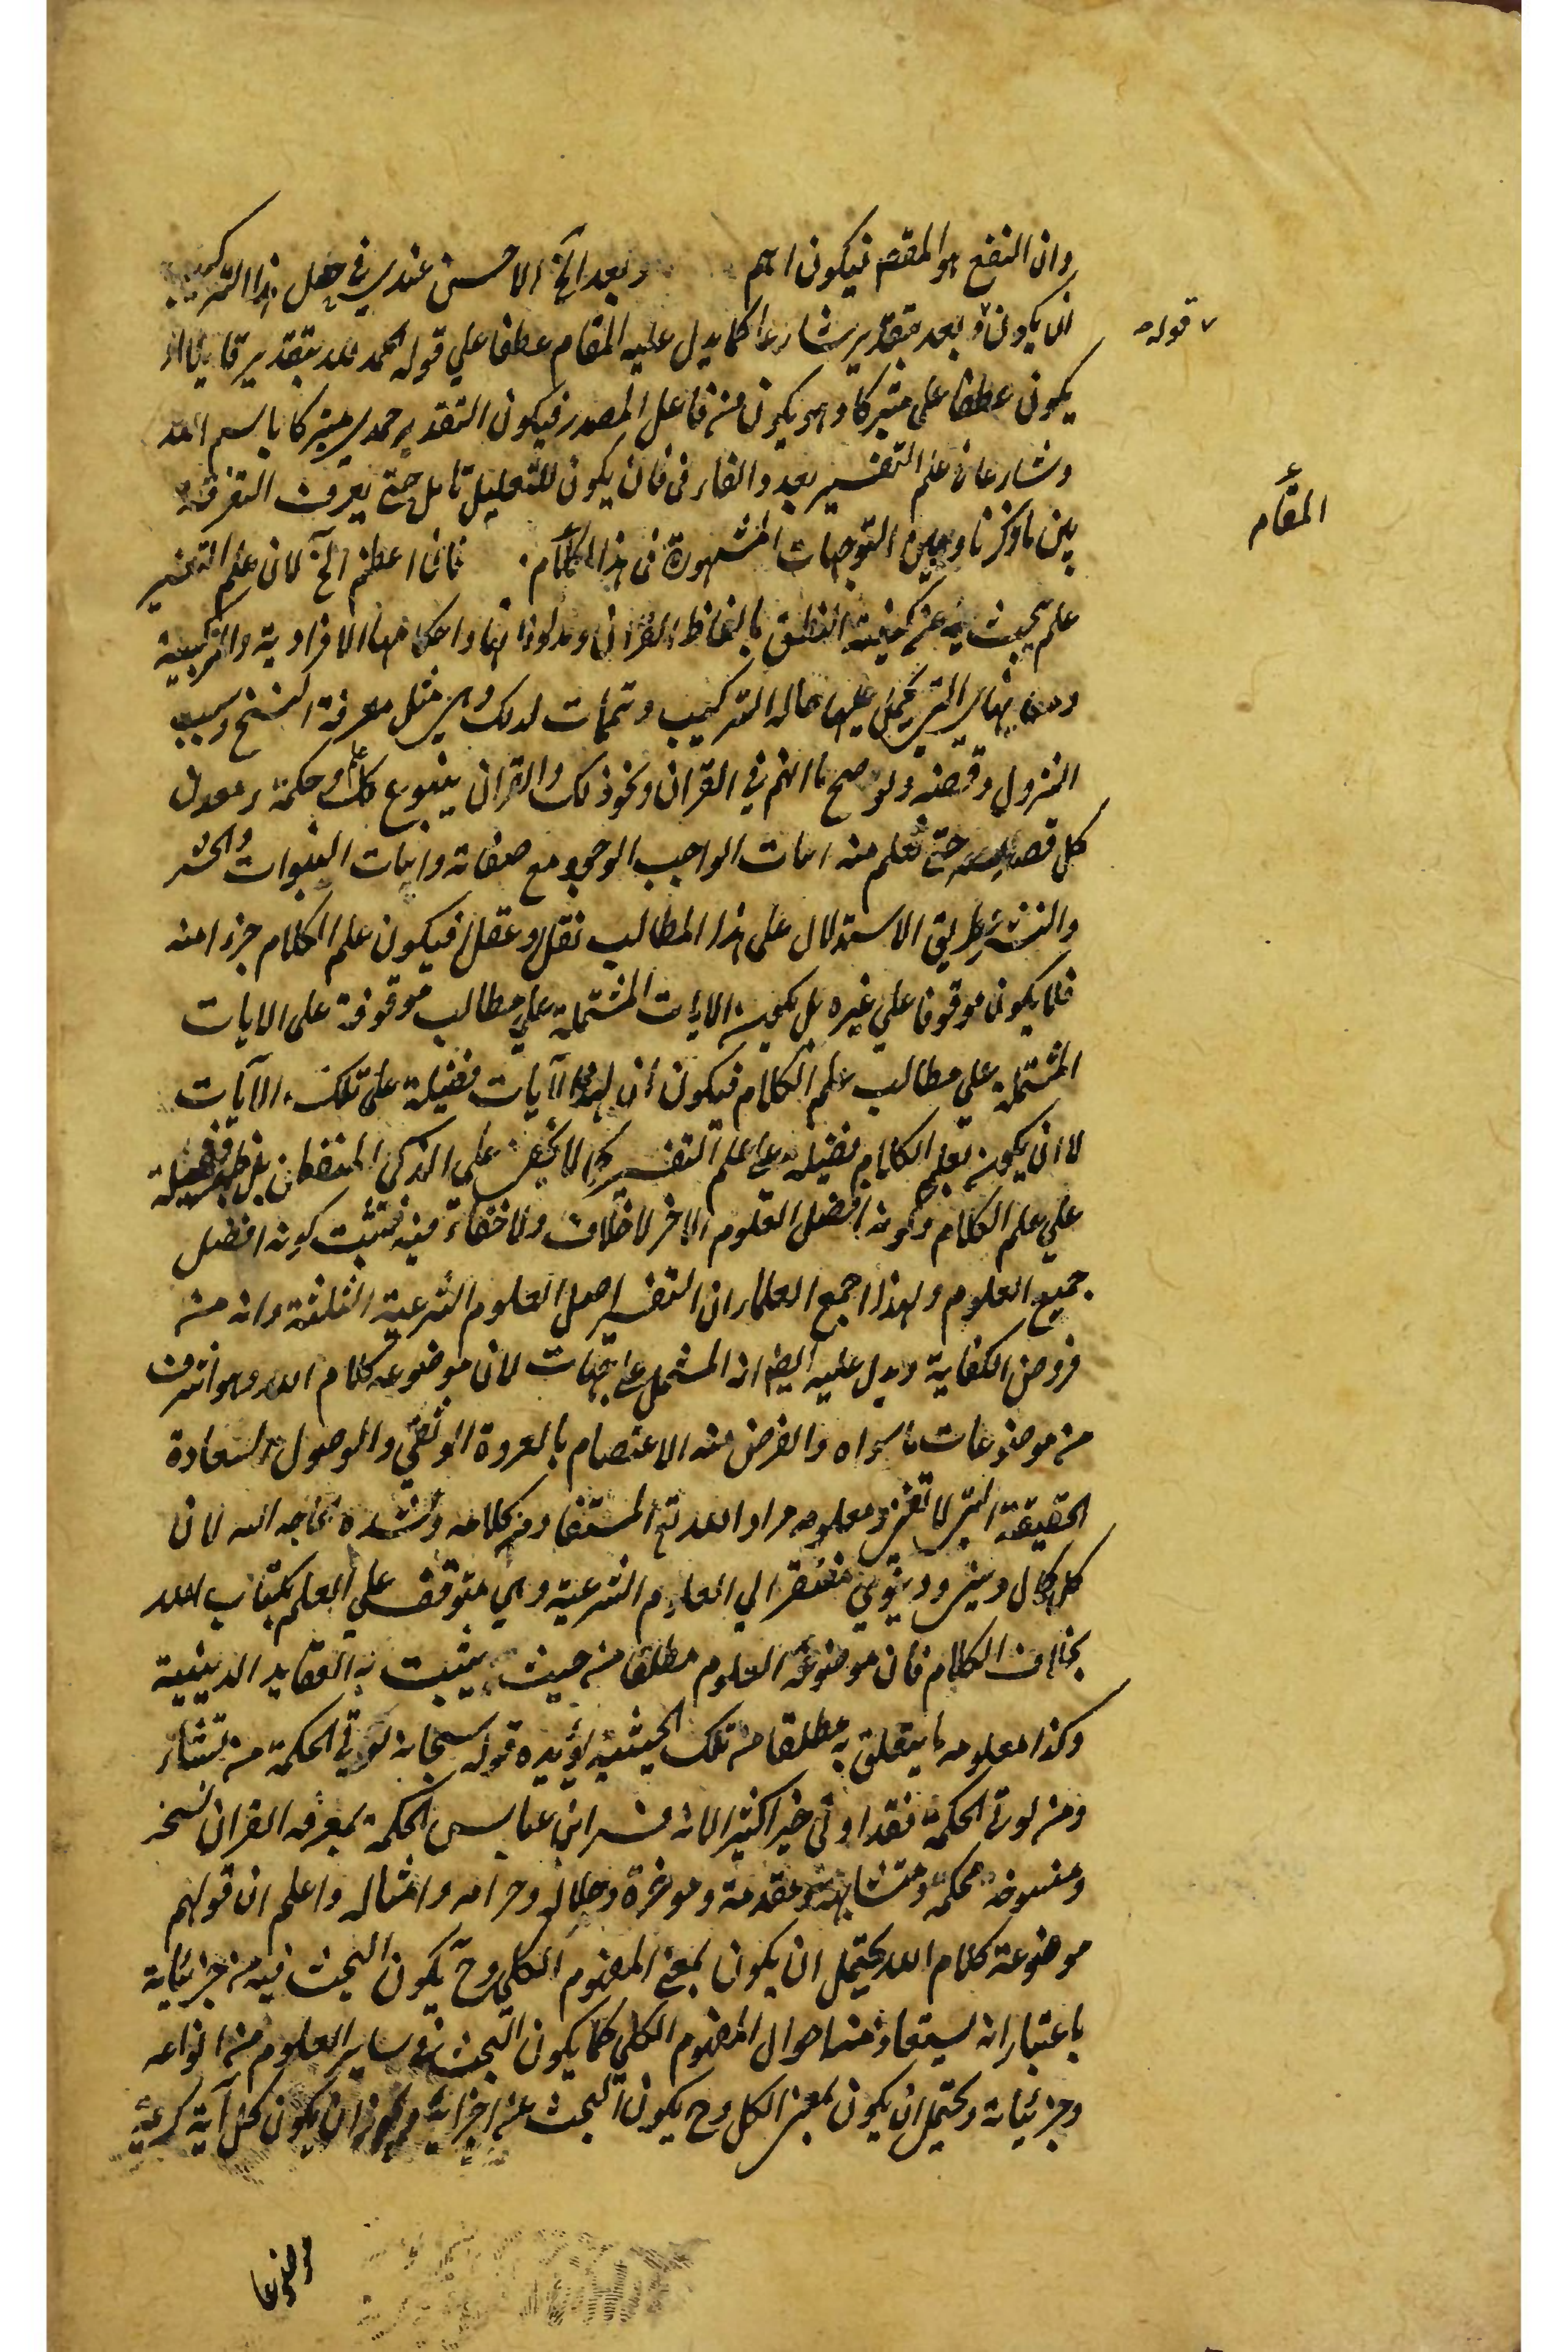 وان النفع هو المقصم فيكون اهم وبعد الخ الاحسن عندي في حل هذا التركيب
ان يكون وبعد بتقدير شارعا كما يدل عليه المقام عطفا علي قوله الحمد لله بتقدير قايلا او
قوله
يكون عطفا علي متبركا وهو يكون من فاعل المصدر فيكون التقدير حمدي متبركا باسم الله
وشارعا في علم التفسير بعد والفاء في فان يكون للتعليل تامل حتي يعرف التفرقة
المقام
بين ما ذكرنا وبين التوجهات المشهورة في هذا المقام. فان اعظم الخ لان علم التفسير
علم يبحث فيه عن كيفية النطق بالفاظ القران ومدلولاتها واحكامها الافرادية والتركيبية
ومعانيها التي تحمل عليها حالة التركيب وتتمات لذلك وهي مثل معرفة النسخ وسبب
النزول وقصة وتوضح ما ابهم في القران ونحو ذلك والقران ينبوع كل علم وحكمة ومعدن
كل حتي تعلم منه اثبات الواجب الوجود مع صفاته واثبات النبوات والحشر
والنشر بطريق الاستدلال علي هذا المطالب نقلا وعقلا فيكون علم الكلام جزءا منه
فلا يكون موقوفا علي غيره بل يكون الايات المشتملة علي مطالب موقوفة علي الايات
المشتملة علي مطالب علم الكلام فيكون ان لهذا الآيات فضيلة علي تلك الآيات
لا ان يكون تعلم الكلام فضيلة علي علم التفسير كما لا يخفي علي الذكي المتفطن بل فضيلة
علي علم الكلام وكونه افضل العلوم الاخر لا خلاف ولا خفاء فيه فثبت كونه افضل
جميع العلوم ولهذا اجمع العلماء ان التفسير اصل العلوم الشرعية الثلثة وانه من
فروض الكفاية ويدل عليه ايضا انه المشتمل علي جهات لان موضوعه كلام الله وهو اشرف
من موضوعات ما سواه والغرض منه الاعتصام بالعروة الوثقي والوصول السعادة
الحقيقة التي لا تفني ومعلومه مراد الله تع المستفاد من كلامه وشدة حاجه اليه لان
كل كمال ديني ودنيوي مفتقر الي العلوم الشرعية وهي متوقف علي العلم بكتاب الله
بخلاف الكلام فان موضوعه العلوم مطلقا من حيث يثبت به العقايد الدينية
وكذا معلومه ما يتعلق به مطلقا من تلك الحيثية يؤيده قوله سبحانه يؤتي الحكمة من تشاء
ومن يوت الحكمة فقد اوتي خيرا كثيرا لانه فسر ابن عباس الحكمة بمعرفه القران نسخه
ومنسوخه محكمة ومتشابهة ومقدمة وموخرة وحلاله وحرامه وامثاله واعلم ان قولهم
موضوعة كلام الله يحتمل ان يكون بمعني المفهوم الكلي وح يكون البحث فيه من جزئياته
باعتبار انه يستفاد منها احوال المفهوم الكلي كما يكون البحث في ساير العلوم من انواعه
وجزئياته ويحتمل ان يكون بمعني الكل وح يكون البحث عن اجزائه ويجوز ان يكون كل آية كريمة
موضوعا